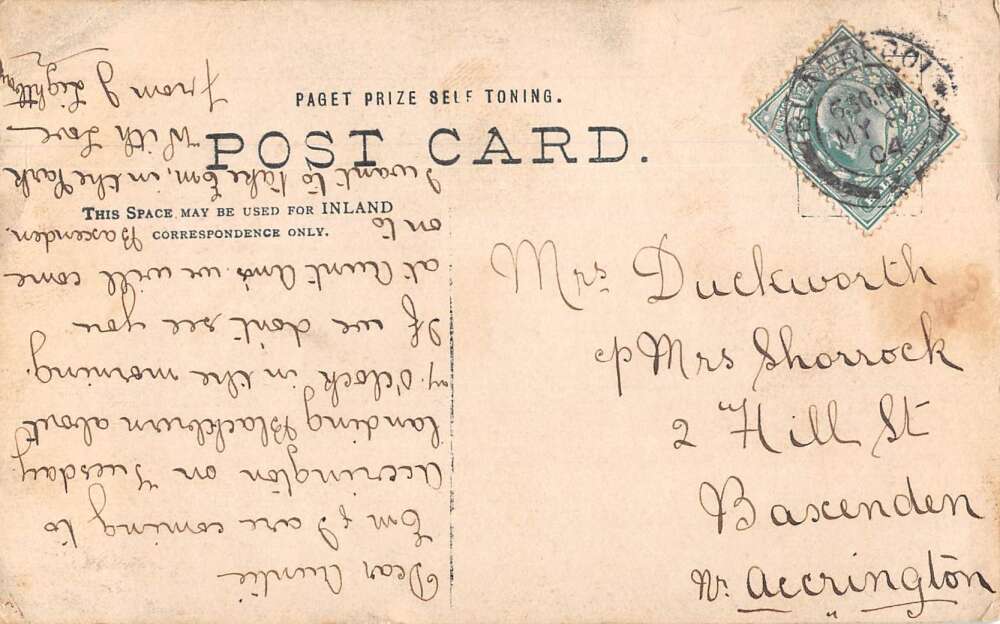 PAGET PRIZE SELF TONING.
POST CARD.
THIS SPACE MAY BE USED FOR INLAND
CORRESPONDENCE ONLY.
BLACKPOOL
MY
04
Mrs Duckworth
c/o Mrs Shorrock
2 Hill St
Baxenden
Nr. Accrington
Dear Auntie
Em & I are coming to
Accrington on Tuesday
landing Blackburn about
O'clock in the morning.
If we don't see you
at Aunt Ann's we will come
on to Baxenden.
I want to take Em, in the Park
With Love
From J